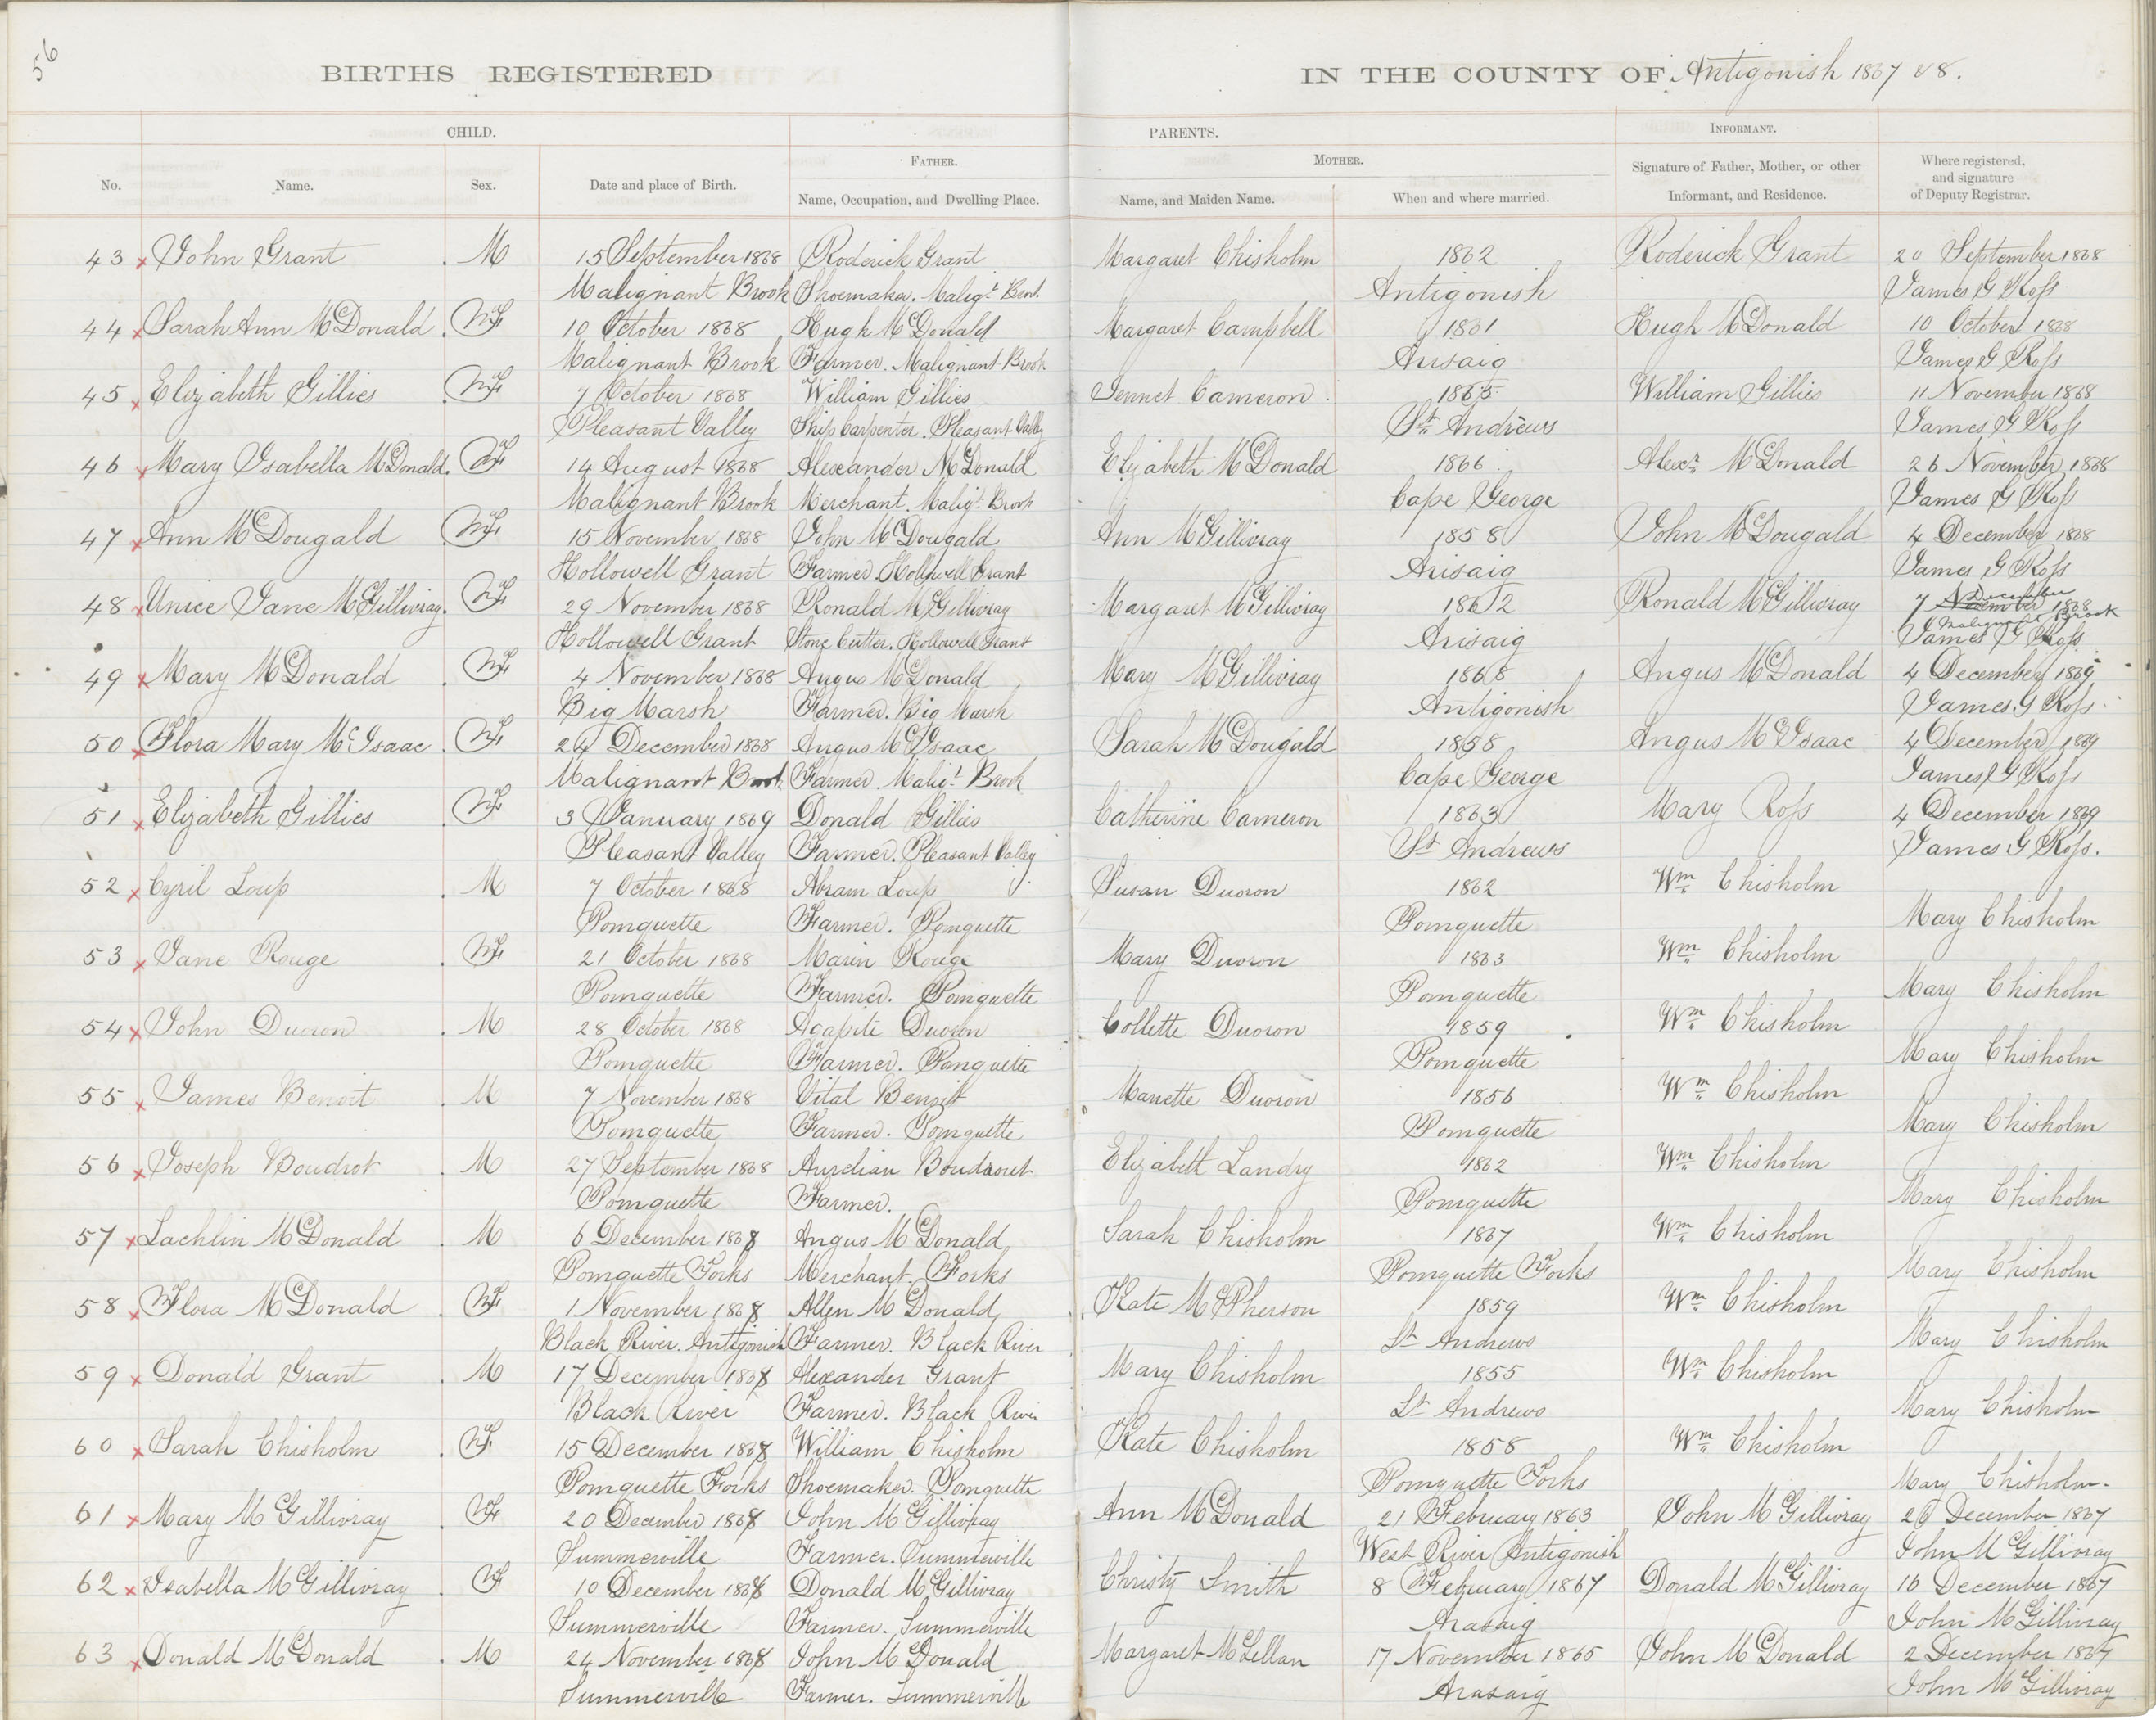 56
BIRTHS REGISTERED IN THE COUNTY OF Antigonish 1867 & 8.
CHILD. PARENTS. INFORMANT.
No. Name. Sex. Date and place of Birth. FATHER. Name, Occupation, and Dwelling Place. MOTHER. Name, and Maiden Name. When and where married. Signature of Father, Mother, or other Informant, and Residence. Where registered, and signature of Deputy Registrar.
43 x John Grant . M 15 September 1868 Roderick Grant Margaret Chisholm 1862 Roderick Grant 20 September 1868
Malignant Brook Shoemaker. Maligt. Brook. Antigonish James G Ross
44 x Sarah Ann McDonald . F 10 October 1868 Hugh McDonald Margaret Campbell 1861 Hugh McDonald 10 October 1868
Malignant Brook Farmer. Malignant Brook Arisaig James G Ross
45 x Elizabeth Gillies . F 7 October 1868 William Gillies Jennet Cameron 1865 William Gillies 11 November 1868
Pleasant Valley Ship Carpenter. Pleasant Valley St. Andrews James G Ross
46 x Mary Isabella McDonald. F 14 August 1868 Alexander McDonald Elizabeth McDonald 1866 Alexr. McDonald 26 November 1868
Malignant Brook Merchant. Maligt. Brook Cape George James G Ross
47 x Ann McDougald . F 15 November 1868 John McDougald Ann McGillivray 1858 John McDougald 4 December 1868
Hollowell Grant Farmer Hollowell Grant Arisaig James G Ross
48 x Unice Jane McGillivray. F 29 November 1868 Ronald McGillivray Margaret McGillivray 1862 Ronald McGillivray 7 November December 1868
Hollowell Grant Stone Cutter. Hollowell Grant Arisaig Malignant Brook James G Ross
49 x Mary McDonald . F 4 November 1868 Angus McDonald Mary McGillivray 1868 Angus McDonald 4 December 1869
Big Marsh Farmer. Big Marsh Antigonish James G Ross
50 x Flora Mary McIsaac . F 24 December 1868 Angus McIsaac Sarah McDougald 1858 Angus McIsaac 4 December 1869
Malignant Brook Farmer Maligt. Brook Cape George James G Ross
51 x Elizabeth Gillies . F 3 January 1869 Donald Gillies Catherine Cameron 1863 Mary Ross 4 December 1869
Pleasant Valley Farmer. Pleasant Valley St Andrews James G Ross.
52 x Cyril Loup . M 7 October 1868 Abram Loup Susan Duoron 1862 Wm. Chisholm
Pomquette Farmer. Pomquette Pomquette Mary Chisholm
53 x Jane Rouge . F 21 October 1868 Marin Rouge Mary Duoron 1863 Wm. Chisholm
Pomquette Farmer. Pomquette Pomquette Mary Chisholm
54 x John Duoron . M 28 October 1868 Acapite Duoron Collette Duoron 1859 Wm. Chisholm
Pomquette Farmer. Pomquette Pomquette Mary Chisholm
55 x James Benoit . M 7 November 1868 Vital Benoit Manette Duoron 1856 Wm. Chisholm
Pomquette Farmer. Pomquette Pomquette Mary Chisholm
56 x Joseph Boudrot . M 27 September 1868 Aurelian Boudrot Elizabeth Landry 1862 Wm. Chisholm
Pomquette Farmer. Pomquette Mary Chisholm
57 x Lachlin McDonald . M 6 December 1868 Angus McDonald Sarah Chisholm 1867 Wm. Chisholm
Pomquette Forks Merchant. Forks Pomquette Forks Mary Chisholm
58 x Flora McDonald . F 1 November 1868 Allen McDonald Kate McPherson 1859 Wm. Chisholm
Black River. Antigonish Farmer. Black River St Andrews Mary Chisholm
59 x Donald Grant . M 17 December 1868 Alexander Grant Mary Chisholm 1855 Wm. Chisholm
Black River Farmer. Black River St Andrews Mary Chisholm
60 x Sarah Chisholm . F 15 December 1868 William Chisholm Kate Chisholm 1858 Wm. Chisholm
Pomquette Forks Shoemaker. Pomquette Pomquette Forks Mary Chisholm.
61 x Mary McGillivray . F 20 December 1868 John McGillivray Ann McDonald 21 February 1863 John McGillivray 26 December 1867
Summerville Farmer. Summerville West River Antigonish John McGillivray
62 x Isabella McGillivray . F 10 December 1868 Donald McGillivray Christy Smith 8 February 1867 Donald McGillivray 16 December 1867
Summerville Farmer. Summerville Arasaig John McGillivray
63 x Donald McDonald . M 24 November 1868 John McDonald Margaret McLellan 17 November 1865 John McDonald 2 December 1867
Summerville Farmer. Summerville Arasaig John McGillivray